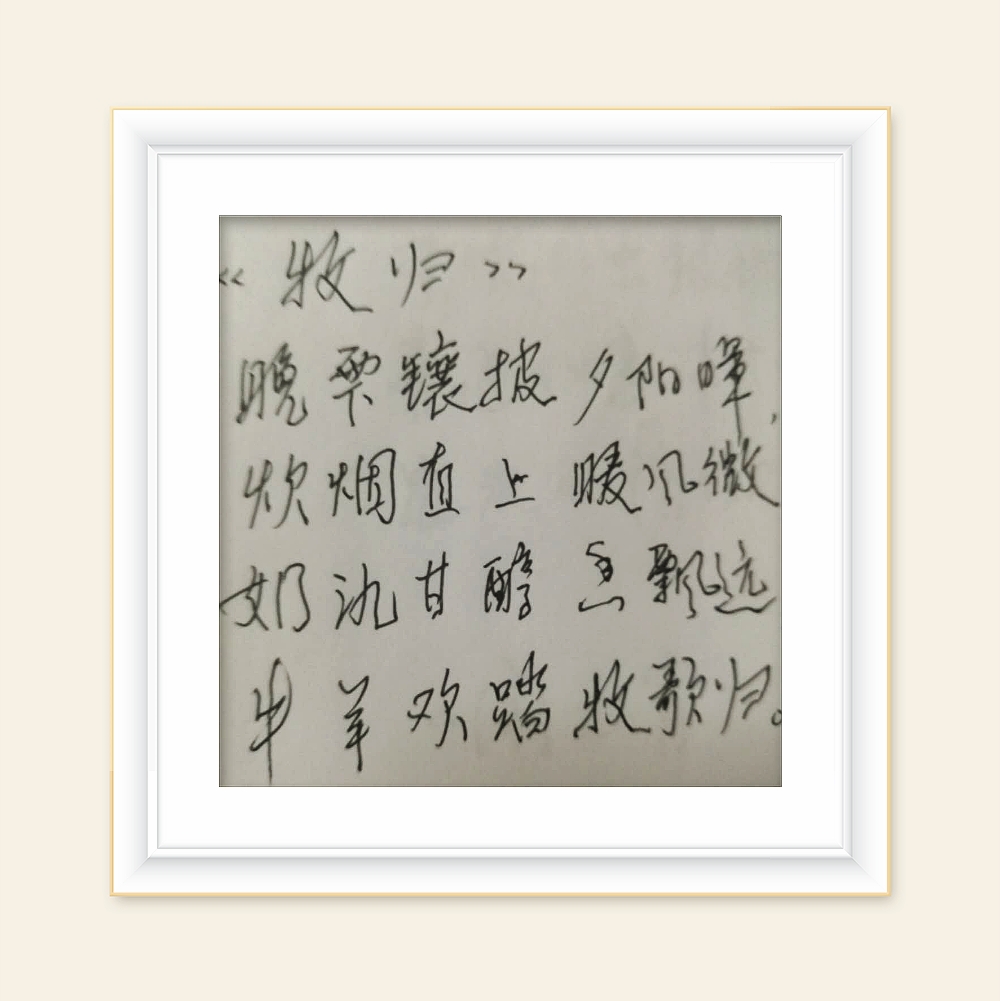 《牧归》
晚雫镶披夕阳晖,
炊烟直上暖风微
奶氿甘醇飘远
牛羊欢踏牧歌归。